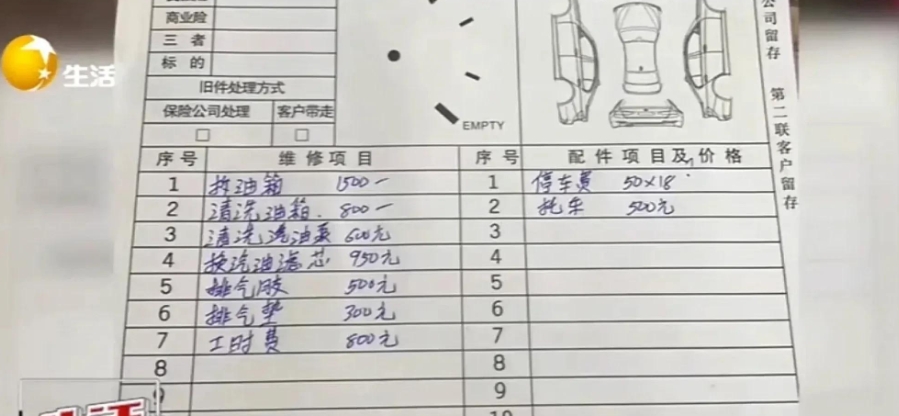 生活
商业险
三者
标的
旧件处理方式
保险公司处理 客户带走
EMPTY
公司留存 第二联客户留存
序号 维修项目 序号 配件项目及价格
1 拆油箱 1500一 1 停车费 50×18
2 清洗油箱. 800一 2 拖车 500元
3 清洗汽油泵 600元 3
4 换汽油滤芯 950元 4
5 排气胶 500元 5
6 排气垫 300元 6
7 工时费 800元 7
8 8
9 9